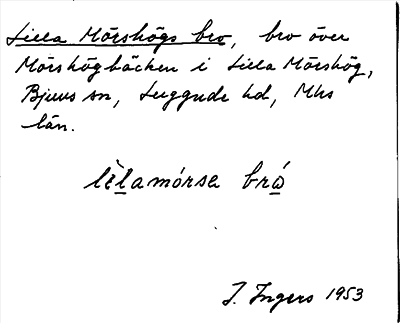 Lilla Mörshögs bro, bro över
Mörshögbäcken i Lilla Mörshög,
Bjuvs sn, Luggude hd, Mhs
län.
lìlamórsa bró
I. Ingers 1953